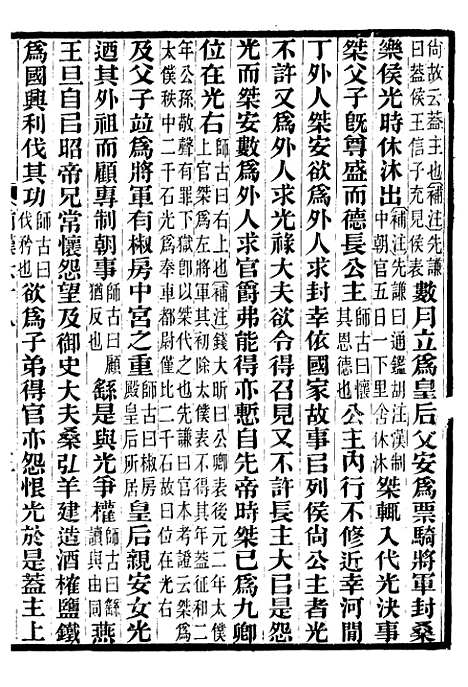 尙故云蓋主也(補注)先謙曰蓋侯王信子充見侯表數月立爲皇后父安爲票騎將軍封桑
樂侯光時休沐出(補注)先謙曰通鑑胡注漢制中朝官五日一下里舍休沐桀輒入代光決事
桀父子旣尊盛而德長公主師古曰懷其恩德也公主內行不修近幸河閒
丁外人桀安欲爲外人求封幸依國家故事㠯列侯尙公主者光
不許又爲外人求光祿大夫欲令得召見又不許長主大㠯是怨
光而桀安數爲外人求官爵弗能得亦慙自先帝時桀已爲九卿
位在光右師古曰右上也(補注)錢大昕曰公卿表後元二年太僕上官桀爲左將軍其初除太僕表不得其年蓋征和二
年公孫敬聲有罪下獄卽以桀代之也先謙曰官本考證云桀爲太僕秩中二千石光爲奉車都尉僅比二千石故曰位在光右
及父子並爲將軍有椒房中宮之重師古曰椒房殿皇后所居皇后親安女光
迺其外祖而顧專制朝事師古曰顧猶反也繇是與光爭權師古曰繇讀與由同燕
王旦自㠯昭帝兄常懷怨望及御史大夫桑弘羊建造酒榷鹽鐵
爲國興利伐其功師古曰伐矜也欲爲子弟得官亦怨恨光於是蓋主上